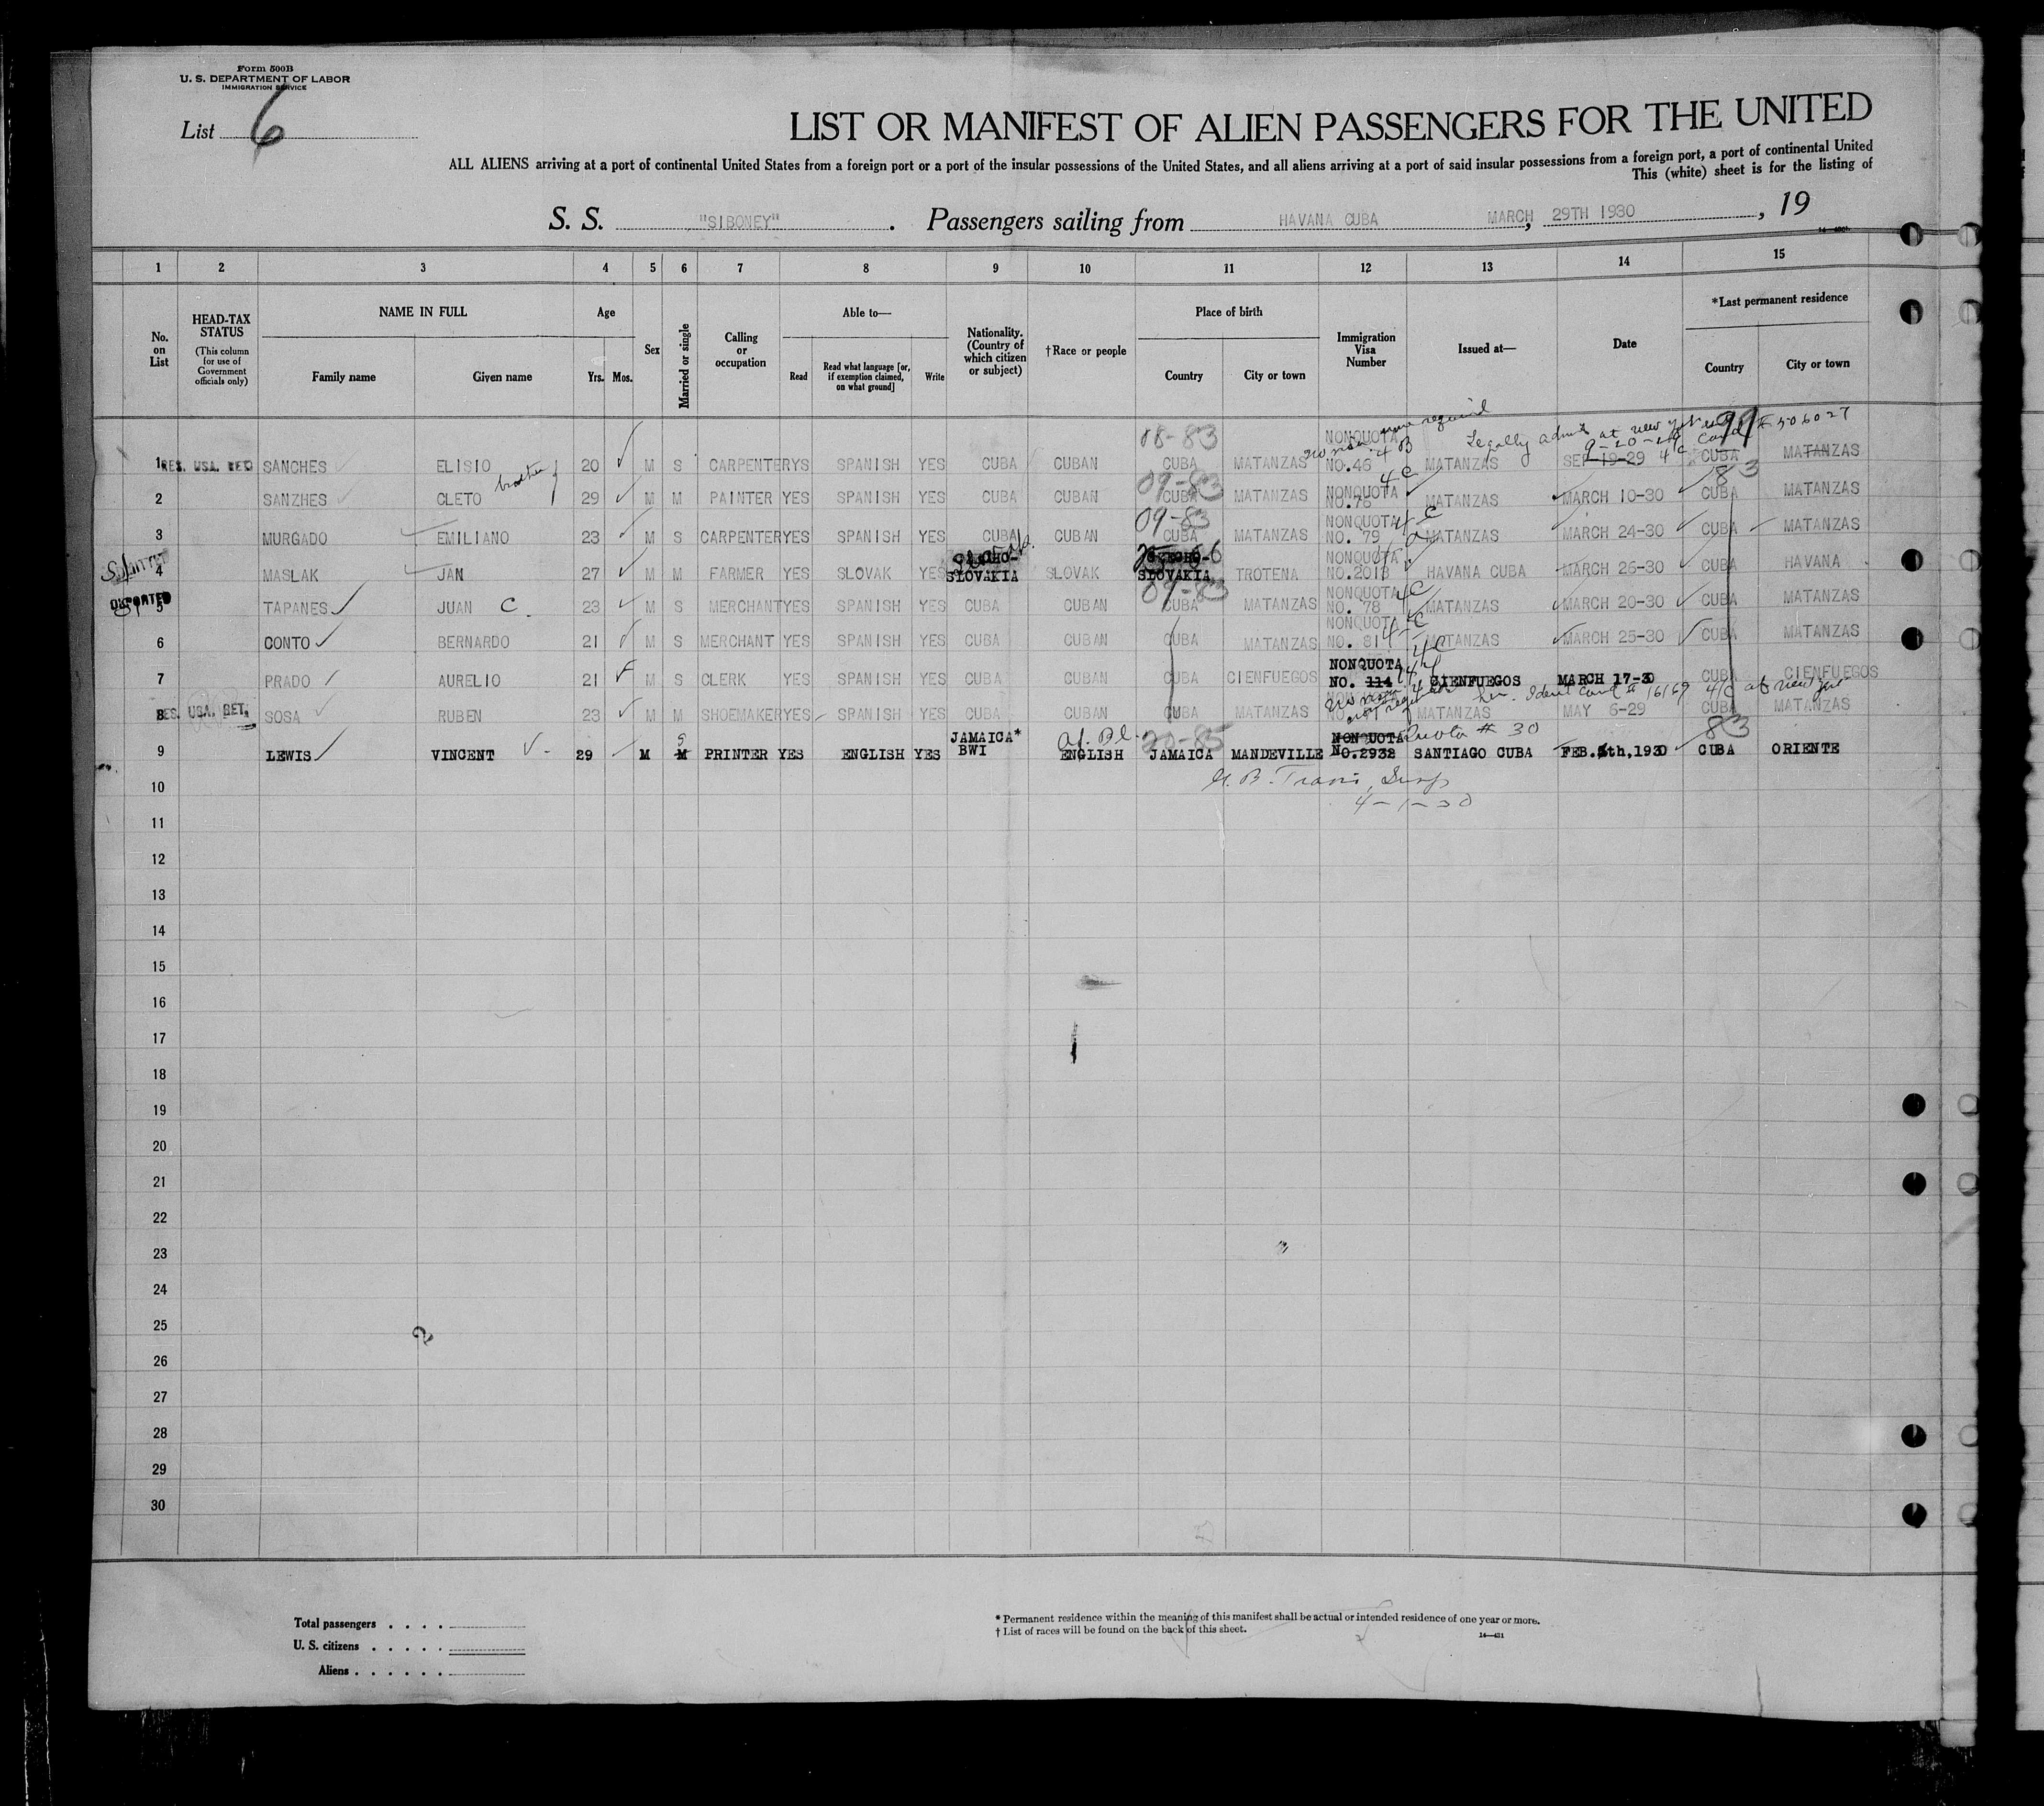 Form 500B
U. S. DEPARTMENT OF LABOR
IMMIGRATION SERVICE
List 6
LIST OR MANIFEST OF ALIEN PASSENGERS FOR THE UNITED
ALL ALIENS arriving at a port of continental United States from a foreign port or a port of the insular possessions of the United States, and all aliens arriving at a port of said insular possessions from a foreign port, a port of continental United
This (white) sheet is for the listing of
S. S. "SIBONEY". Passengers sailing from HAVANA CUBA MARCH, 29TH 1930, 19
1 2 3 4 5 6 7 8 9 10 11 12 13 14 15
No. on List
HEAD-TAX STATUS (This column for use of Government officials only)
NAME IN FULL Family name Given name
Age Yrs. Mos.
Sex
Married or single
Calling or occupation
Able to— Read Read what language [or, if exemption claimed, on what ground] Write
Nationality. (Country of which citizen or subject)
†Race or people
Place of birth Country City or town
Immigration Visa Number
Issued at—
Date
*Last permanent residence Country City or town
none required
08-83 4B Legally admit at new york 9-20-29 4C card # 506027
1 RES. USA. RET. SANCHES ELISIO 20 M S CARPENTER YS SPANISH YES CUBA CUBAN CUBA MATANZAS NONQUOTA NO.46 MATANZAS SEP-19-29 CUBA MATANZAS
brother
2 SANZHES CLETO 29 M M PAINTER YES SPANISH YES CUBA CUBAN 09-83 CUBA MATANZAS NONQUOTA NO.76 4C MATANZAS MARCH 10-30 83 CUBA MATANZAS
3 MURGADO EMILIANO 23 M S CARPENTER YES SPANISH YES CUBA CUBAN 09-83 CUBA MATANZAS NONQUOTA NO. 79 4C MATANZAS MARCH 24-30 CUBA MATANZAS
4 MASLAK JAN 27 M M FARMER YES SLOVAK YES SLOVAKIA SLOVAK SLOVAKIA TROTENA NONQUOTA NO.2018 HAVANA CUBA MARCH 26-30 CUBA HAVANA
DEPORTED
5 TAPANES JUAN C. 23 M S MERCHANT YES SPANISH YES CUBA CUBAN 09-83 CUBA MATANZAS NONQUOTA NO. 78 4C MATANZAS MARCH 20-30 CUBA MATANZAS
6 CONTO BERNARDO 21 M S MERCHANT YES SPANISH YES CUBA CUBAN CUBA MATANZAS NONQUOTA NO. 81 4-C MATANZAS MARCH 25-30 CUBA MATANZAS
7 PRADO AURELIO 21 M S CLERK YES SPANISH YES CUBA CUBAN CUBA CIENFUEGOS NONQUOTA NO. 114 4C CIENFUEGOS MARCH 17-30 CUBA CIENFUEGOS
Ident Card # 16169 4/C at New York
8 RES. USA. RET. SOSA RUBEN 23 M M SHOEMAKER YES SPANISH YES CUBA CUBAN CUBA MATANZAS MATANZAS MAY 6-29 CUBA MATANZAS
Af. Bl. 20-85 Quota # 30 83
9 LEWIS VINCENT 29 M S M PRINTER YES ENGLISH YES JAMAICA* BWI ENGLISH JAMAICA MANDEVILLE NONQUOTA NO.2932 SANTIAGO CUBA FEB. th,1930 CUBA ORIENTE
10 Travis, Insp
4-1-30
11
12
13
14
15
16
17
18
19
20
21
22
23
24
25
26
27
28
29
30
Total passengers . . . .
U. S. citizens . . . . .
Aliens . . . . . .
* Permanent residence within the meaning of this manifest shall be actual or intended residence of one year or more.
† List of races will be found on the back of this sheet.
14—421